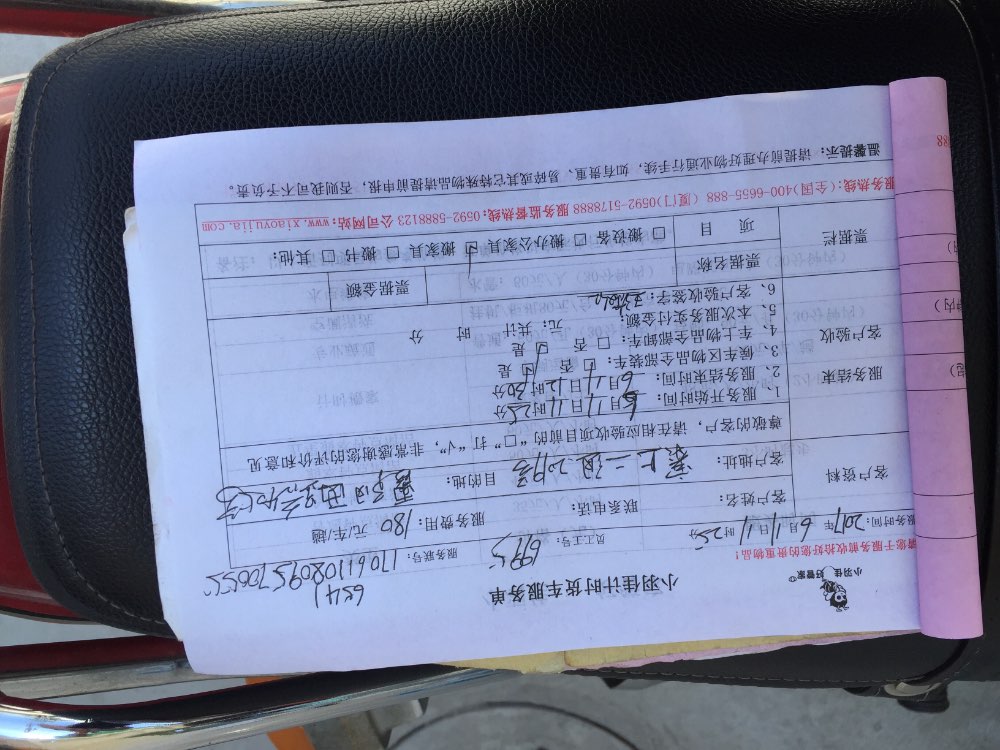 小羽佳 好管家
小羽佳计时货车服务单
6541
请您于服务前收拾好您的贵重物品!
员工号: 6995
服务联号: 1706110809570655
服务时间: 2017年 6月11日11时25分
客户资料
客户姓名:
联系电话:
服务费用: 180 元/车/趟
客户地址:
目的地:
尊敬的客户,请在相应验收项目前的“□”打“√”,非常感谢您的评价和意见
服务结束
客户验收
1、服务开始时间: 6月11日11时25分
2、服务结束时间: 6月11日12时30分
3、候车区物品全部装车: □ 是 □ 否
4、车上物品全部卸车: □ 是 □ 否
5、本次服务实付金额: 元; 共计: 时 分
6、客户验收签字:
票据栏
票据名称
票据金额
项 目
□ 搬设备 □ 搬办公家具 □ 搬家具 □ 搬书 □ 其他:
服务热线:(全国)400-6655-888 (厦门)0592-5178888 服务监督热线:0592-5888123 公司网站:www.xiaoyujia.com
温馨提示: 请提前办理好物业通行手续,如有贵重、易碎或其它特殊物品请提前申报,否则我司不予负责。